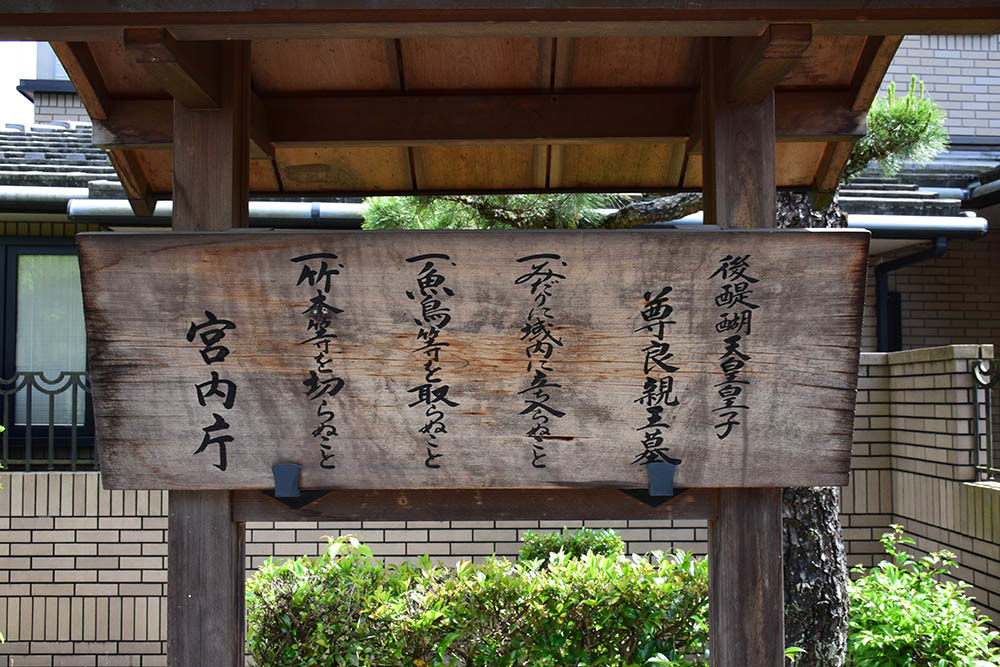 後醍醐天皇皇子
尊良親王墓
一みだりに域内に立ち入らぬこと
一魚鳥等を取らぬこと
一竹木等を切らぬこと
宮内庁